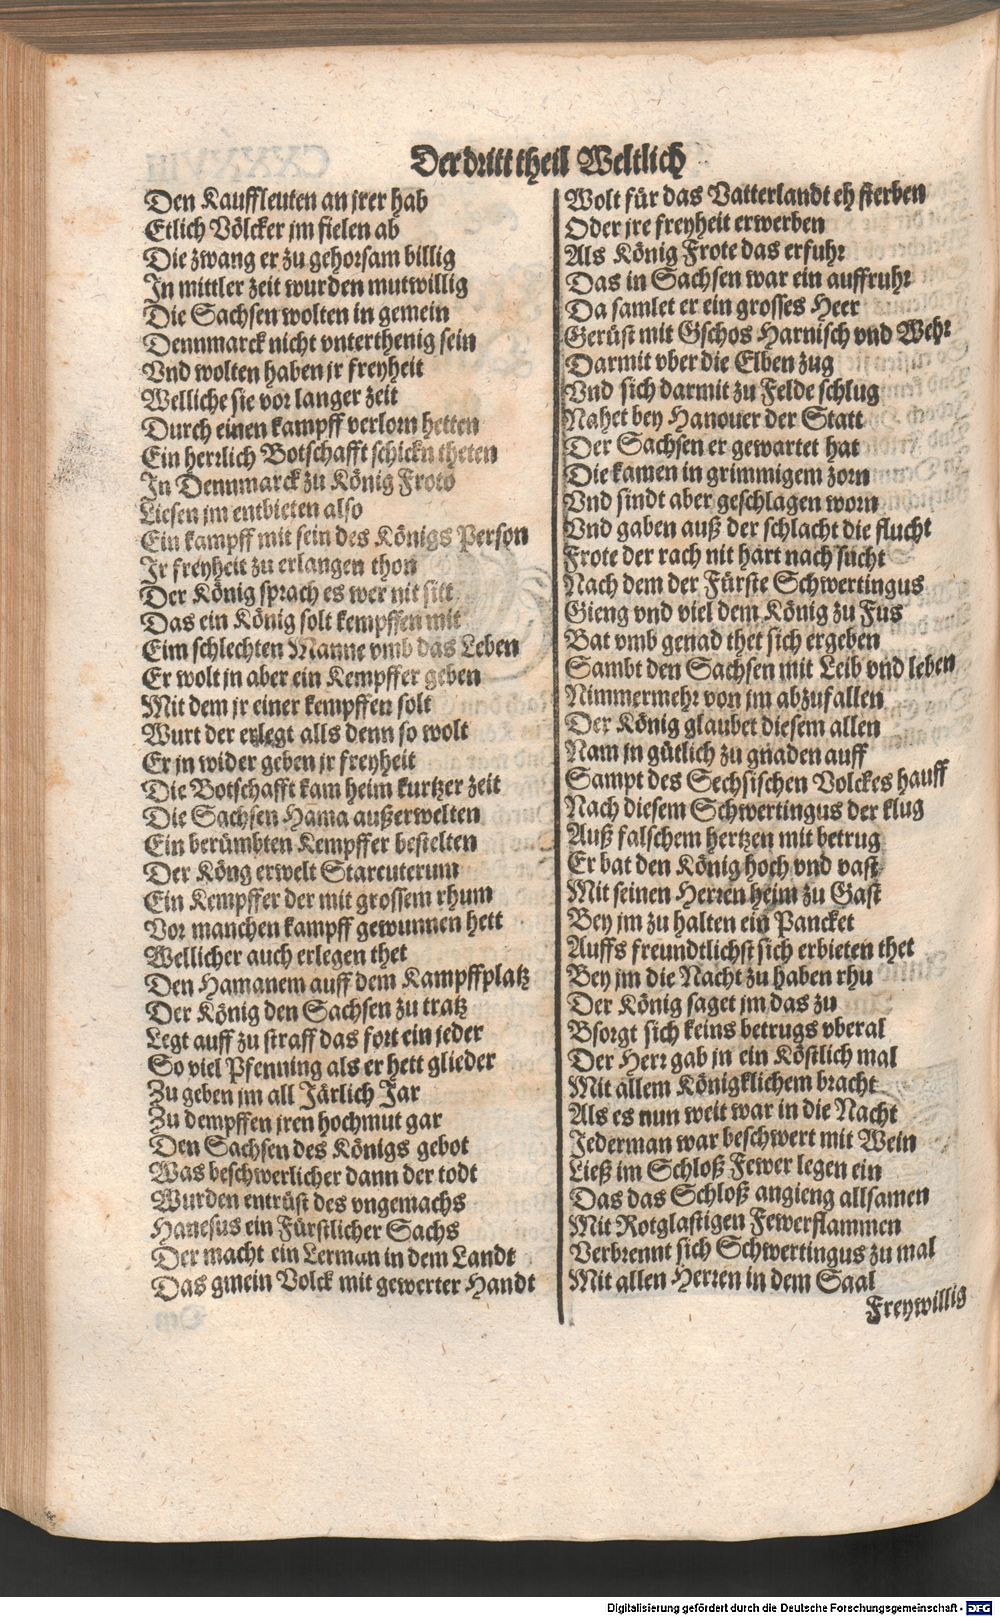 Der dritt theil Weltlich
Den Kauffleuten an jrer hab
Etlich Völcker jm fielen ab
Die zwang er zu gehorsam billig
In mittler zeit wurden mutwillig
Die Sachsen wolten in gemein
Dennmarck nicht vnterthenig sein
Vnd wolten haben jr freyheit
Welliche sie vor langer zeit
Durch einen kampff verlorn hetten
Ein herrlich Botschafft schickn theten
In Dennmarck zu König Froto
Liesen jm entbieten also
Ein kampff mit sein des Königs Person
Ir freyheit zu erlangen thon
Der König sprach es wer nit sitt
Das ein König solt kempffen mit
Eim schlechten Manne vmb das Leben
Er wolt jn aber ein Kempffer geben
Mit dem jr einer kempffen solt
Wurt der erlegt alls denn so wolt
Er jn wider geben jr freyheit
Die Botschafft kam heim kurtzer zeit
Die Sachsen Hama außerwelten
Ein berümbten Kempffer bestelten
Der Köng erwelt Starcuterum
Ein Kempffer der mit grossem rhum
Vor manchen kampff gewunnen hett
Wellicher auch erlegen thet
Den Hamanem auff dem Kampffplatz
Der König den Sachsen zu tratz
Legt auff zu straff das fort ein jeder
So viel Pfenning als er hett glieder
Zu geben jm all Järlich Jar
Zu dempffen jren hochmut gar
Den Sachsen des Königs gebot
Was beschwerlicher dann der todt
Wurden entrüst des vngemachs
Hanesus ein Fürstlicher Sachs
Der macht ein Lerman in dem Landt
Das gmein Volck mit gewerter Handt
Wolt für das Vatterlandt eh sterben
Oder jre freyheit erwerben
Als König Frote das erfuhr
Das in Sachsen war ein auffruhr
Da samlet er ein grosses Heer
Gerüst mit Gschos Harnisch vnd Wehr
Darmit vber die Elben zug
Vnd sich darmit zu Felde schlug
Nahet bey Hanouer der Statt
Der Sachsen er gewartet hat
Die kamen in grimmigem zorn
Vnd sindt aber geschlagen worn
Vnd gaben auß der schlacht die flucht
Frote der rach nit hart nach sucht
Nach dem der Fürste Schwertingus
Gieng vnd viel dem König zu Fus
Bat vmb genad thet sich ergeben
Sambt den Sachsen mit Leib vnd leben
Nimmermehr von jm abzufallen
Der König glaubet diesem allen
Nam jn gütlich zu gnaden auff
Sampt des Sechsischen Volckes hauff
Nach diesem Schwertingus der klug
Auß falschem hertzen mit betrug
Er bat den König hoch vnd vast
Mit seinen Herren heim zu Gast
Bey jm zu halten ein Pancket
Auffs freundtlichst sich erbieten thet
Bey jm die Nacht zu haben rhu
Der König saget jm das zu
Bsorgt sich keins betrugs vberal
Der Herr gab jn ein Köstlich mal
Mit allem Königklichem bracht
Als es nun weit war in die Nacht
Jederman war beschwert mit Wein
Ließ im Schloß Fewer legen ein
Das das Schloß angieng allsamen
Mit Rotglastigen Fewerflammen
Verbrennt sich Schwertingus zu mal
Mit allen Herren in dem Saal
Freywillig
Digitalisierung gefördert durch die Deutsche Forschungsgemeinschaft - DFG